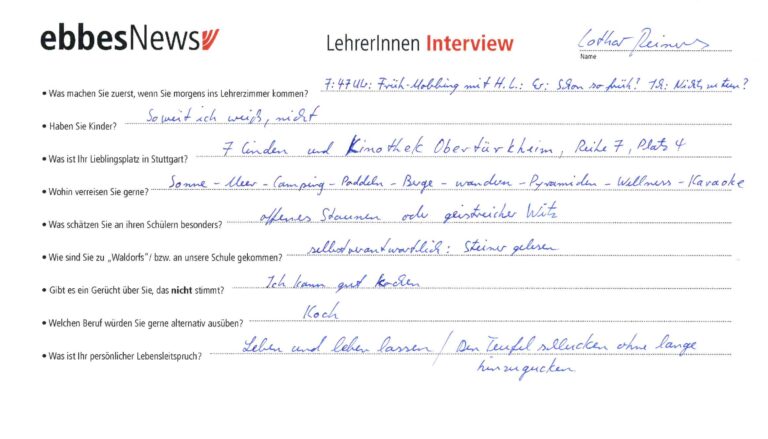 ebbesNews
LehrerInnen Interview
Lothar Reiners
Name
• Was machen Sie zuerst, wenn Sie morgens ins Lehrerzimmer kommen? 7:47 Uhr: Früh-Mobbing mit H.L.: Er: Schon so früh! Ich: Nichts zu tun?
• Haben Sie Kinder? Soweit ich weiß, nicht
• Was ist Ihr Lieblingsplatz in Stuttgart? 7 Linden und Kinothek Obertürkheim, Reihe 7, Platz 4
• Wohin verreisen Sie gerne? Sonne – Meer – Camping – Paddeln – Berge – wandern – Pyramiden – Wellness – Karaoke
• Was schätzen Sie an ihren Schülern besonders? offenes Staunen oder geistreicher Witz
• Wie sind Sie zu „Waldorfs"/ bzw. an unsere Schule gekommen? selbstverantwortlich: Steiner gelesen
• Gibt es ein Gerücht über Sie, das nicht stimmt? Ich kann gut kochen
• Welchen Beruf würden Sie gerne alternativ ausüben? Koch
• Was ist Ihr persönlicher Lebensleitspruch? Leben und leben lassen / Den Teufel schlucken ohne lange
hinzugucken